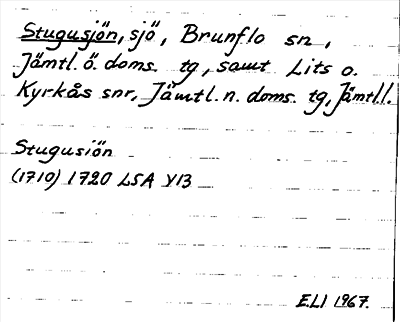 Stugusjön, sjö, Brunflo sn,
Jämtl. ö. doms. tg, samt Lits o.
Kyrkås snr, Jämtl. n. doms. tg, Jämtl.l.
Stugusiön
(1710) 1720 LSA Y13
E.L! 1967.